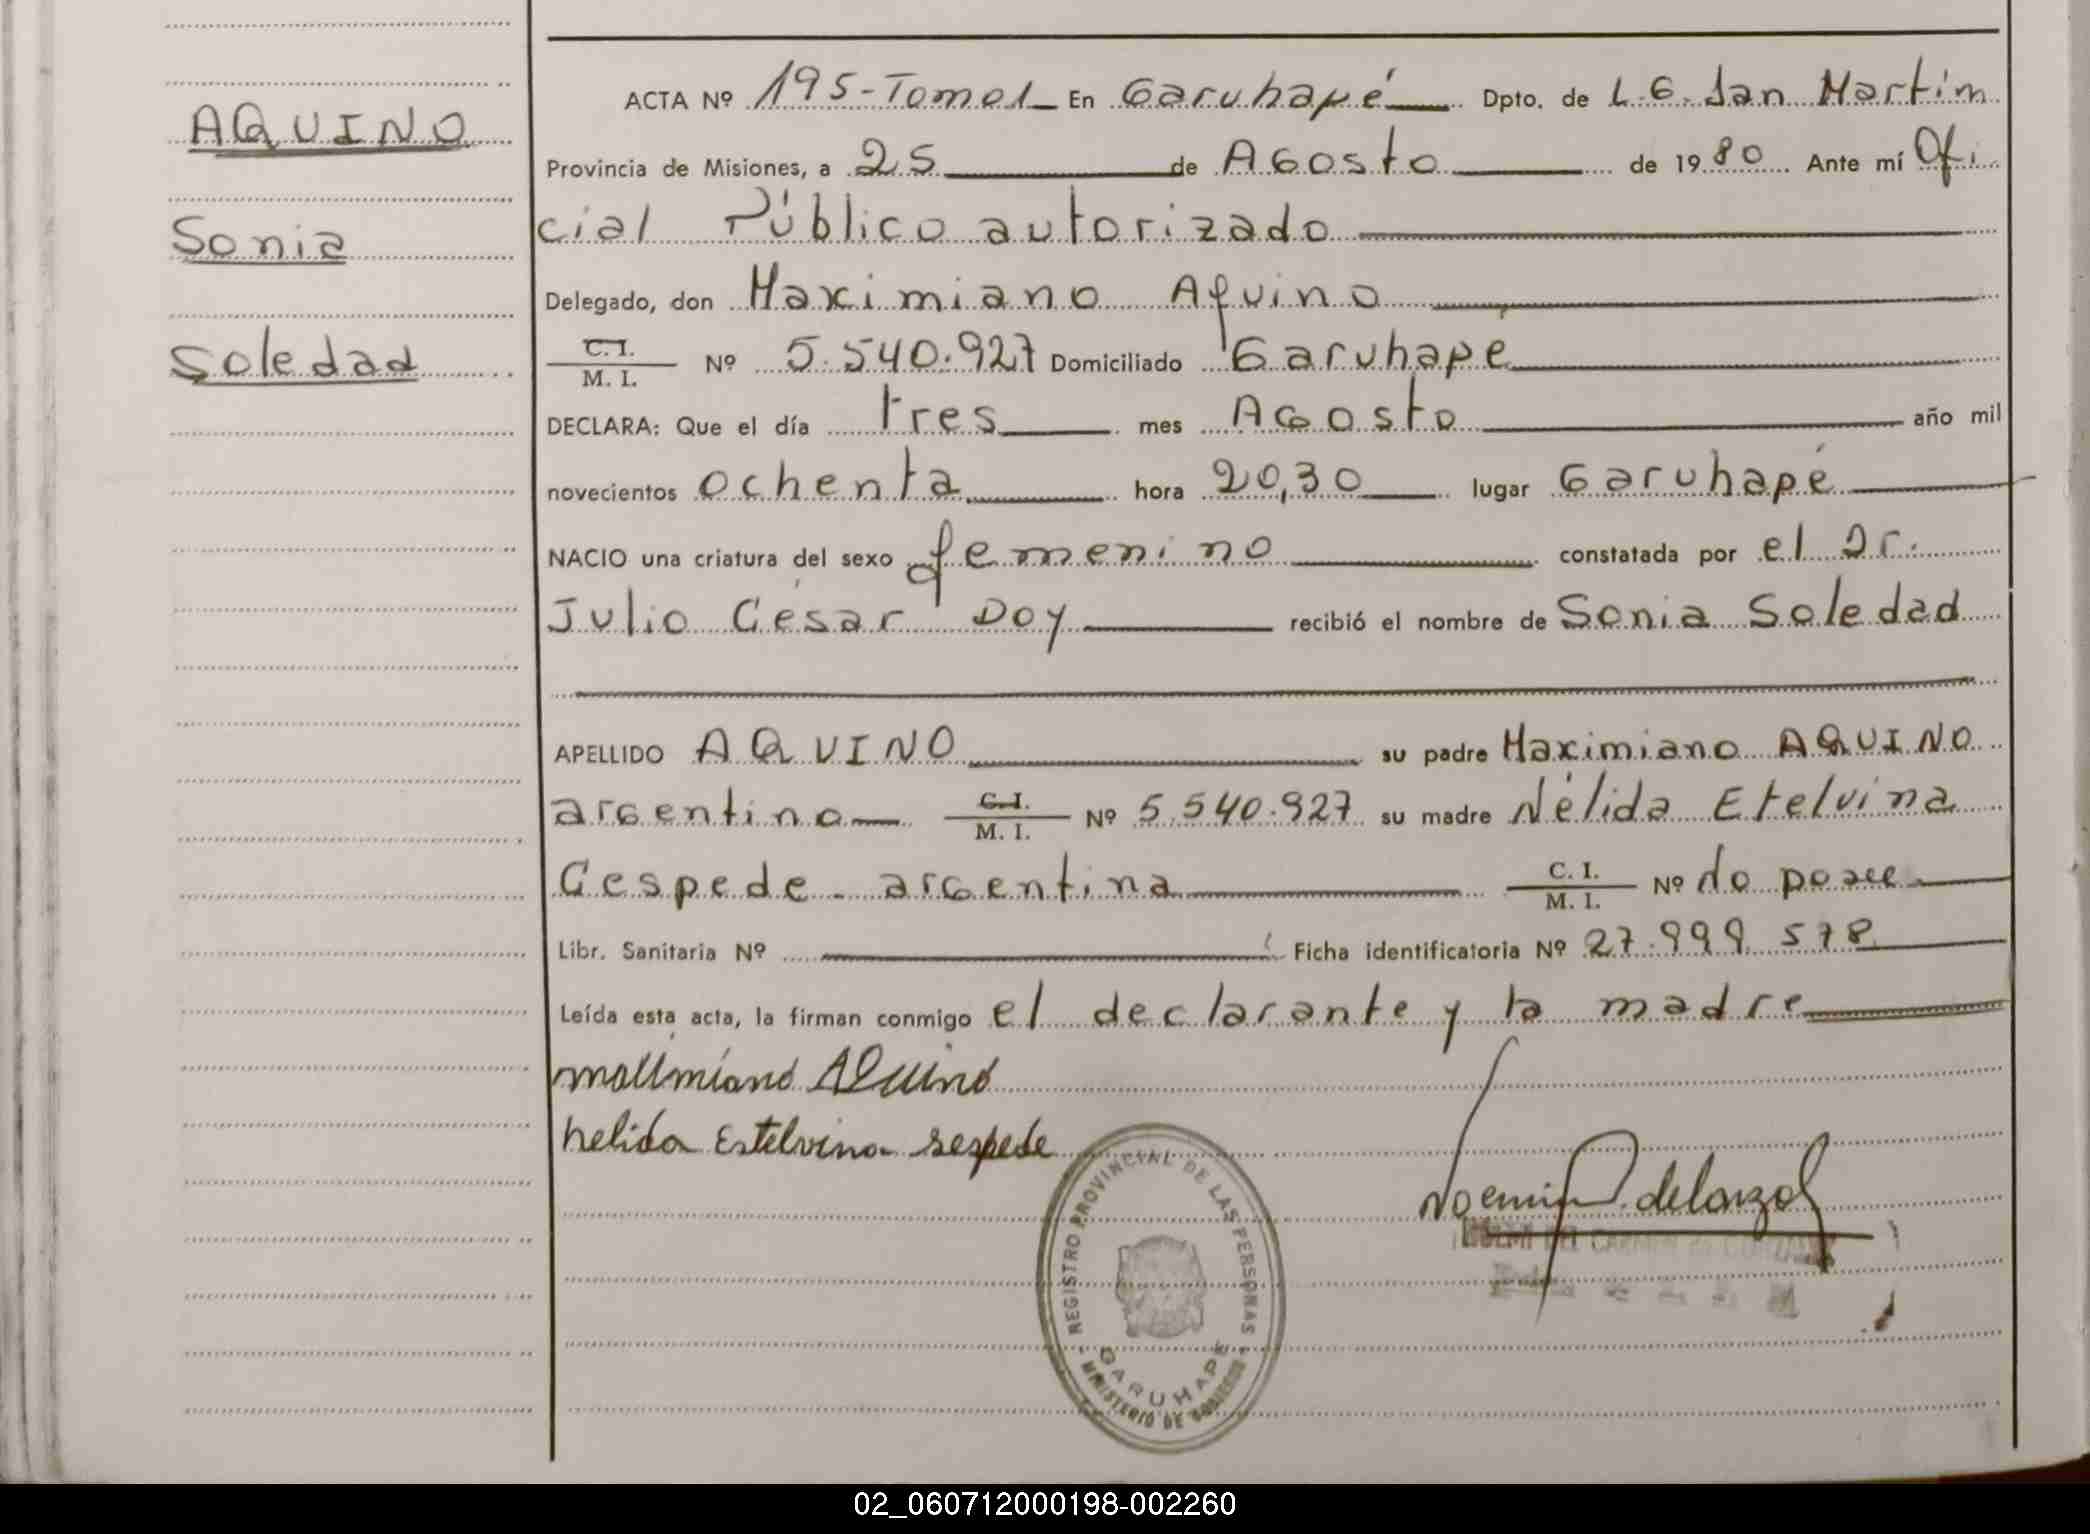 AQUINO
Sonia
Soledad
ACTA Nº 195-Tomo1 En Garuhapé Dpto. de L.G. San Martín
Provincia de Misiones, a 25 de Agosto de 1980 Ante mí Ofi
cial Público autorizado
Delegado, don Maximiano Aquino
C.I. / M. I. Nº 5.540.927 Domiciliado Garuhapé
DECLARA: Que el día tres mes Agosto año mil
novecientos ochenta hora 20,30 lugar Garuhapé
NACIO una criatura del sexo femenino constatada por el Dr.
Julio César Doy recibió el nombre de Sonia Soledad
APELLIDO AQUINO su padre Maximiano AQUINO
argentino C.I. / M. I. Nº 5.540.927 su madre Nélida Etelvina
Cespede - argentina C. I. / M. I. Nº No posee
Libr. Sanitaria Nº Ficha identificatoria Nº 27.999 578
Leída esta acta, la firman conmigo el declarante y la madre
Aquino
nelida Estelvina sespede
REGISTRO PROVINCIAL DE LAS PERSONAS
GARUHAPE
MINISTERIO DE GOBIERNO
02_060712000198-002260